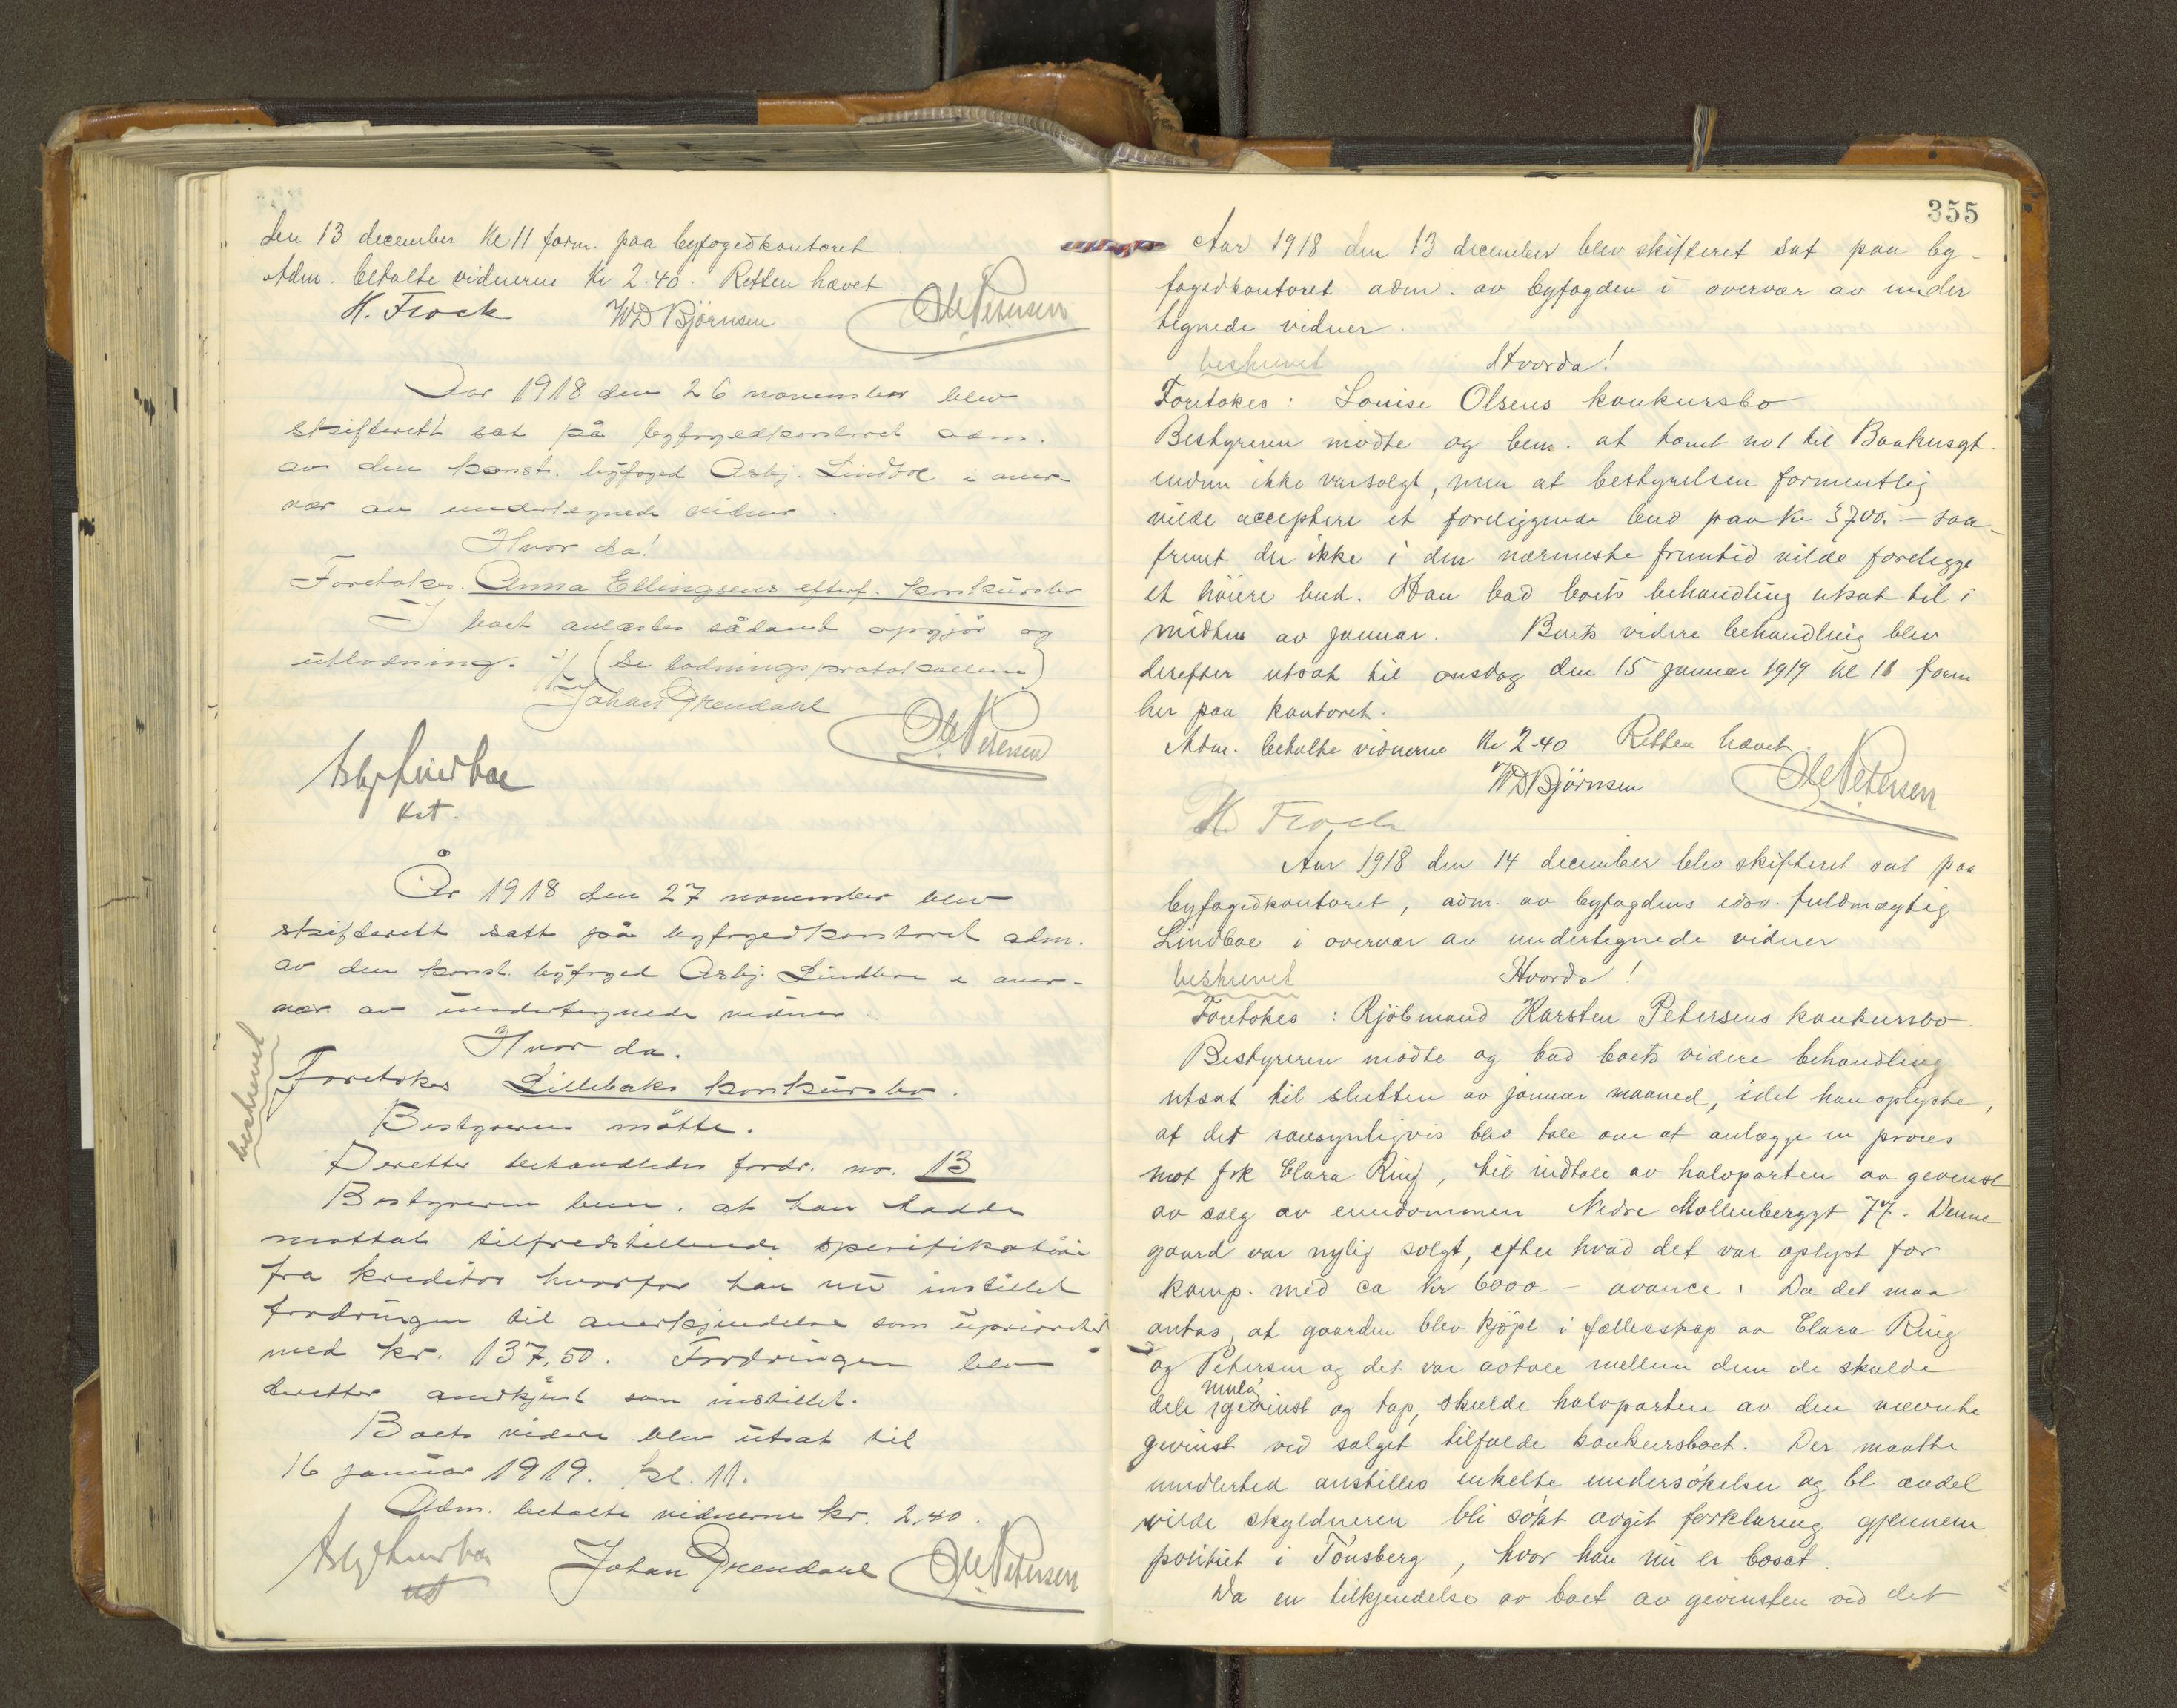 den 13 december kl 11 form. paa byfogedkontoret
Adm. betalte vidnerne kr 2.40. Retten hævet
H. Frock WD Bjørnsen Ole Petersen
Aar 1918 den 26 november blev
skifterett sat på byfogedkontoret adm.
av den konst. byfoged Asbj. Lindboe i over-
vær av undertegnede vidner.
Hvor da!
Foretokes. Anna Ellingsens efterf. konkursbo
I boet avlæstes sådant opgjør og
utlodning. ./. (Se lodningsprotokollen)
Johan Grendahl Ole Petersen
Asbj Lindboe
kst.
År 1918 den 27 november blev
skifterett satt på byfogedkontoret adm.
av den konst. byfoged Asbj. Lindboe i over-
vær av undertegnede vidner.
Hvor da.
beskrevet
Foretokes Lillebaks konkursbo.
Bestyreren møtte.
Deretter behandledes fordr. no. 13
Bestyreren bem. at han hadde
mottat tilfredstillende spesifikation
fra kreditor hvorfor han nu instillet
fordringen til anerkjendelse som uprioritert
med kr. 137,50. Fordringen blev
deretter anerkjent som instillet.
Boets videre blev utsat til
16 januar 1919. kl. 11.
Adm. betalte vidnerne kr. 2,40.
Asbj Lindboe Johan Grendahl Ole Petersen
kst
355
Aar 1918 den 13 december blev skifteret sat paa by-
fogedkontoret adm. av byfogden i overvær av under
tegnede vidner.
beskrevet Hvorda!
Foretokes: Louise Olsens konkursbo
Bestyreren mødte og bem. at tomt no 1 til Baahusgt.
endnu ikke var solgt, men at bestyrelsen formentlig
vilde acceptere et foreliggende bud paa kr 3700.- saa-
fremt der ikke i den nærmeste fremtid vilde foreligge
et höiere bud. Han bad boets behandling utsat til i
midten av januar. Boets videre behandling blev
derefter utsat til onsdag den 15 januar 1919 kl 11 form
her paa kontoret.
Adm. betalte vidnerne kr 2-40 Retten hævet.
WD Bjørnsen Ole Petersen
H. Frock
Aar 1918 den 14 december blev skifteret sat paa
byfogedkontoret, adm. av byfogdens edsv. fuldmægtig
Lindboe i overvær av undertegnede vidner
beskrevet Hvorda!
Foretokes: Kjöbmand Karsten Petersens konkursbo
Bestyreren mødte og bad boets videre behandling
utsat til slutten av januar maaned, idet han oplyste,
at det sansynligvis blev tale om at anlægge en proces
mot frk Clara Ring, til indtale av halvparten av gevinst
av salg av eiendommen Nedre Møllenberggt 77. Denne
gaard var nylig solgt, efter hvad det var oplyst for
komp. med ca kr 6000.- avance. Da det maa
antas, at gaarden blev kjöpt i fællesskap av Clara Ring
og Petersen og det var avtale mellem dem de skulde
dele mulig gevinst og tap, skulde halvparten av den nævnte
gevinst ved salget tilfalde konkursboet. Der maatte
imidlertid anstilles enkelte undersökelser og bl. andet
vilde skyldneren bli sökt avgit forklaring gjennem
politiet i Tönsberg, hvor han nu er bosat.
Da en tilkjendelse av boet av gevinsten ved det